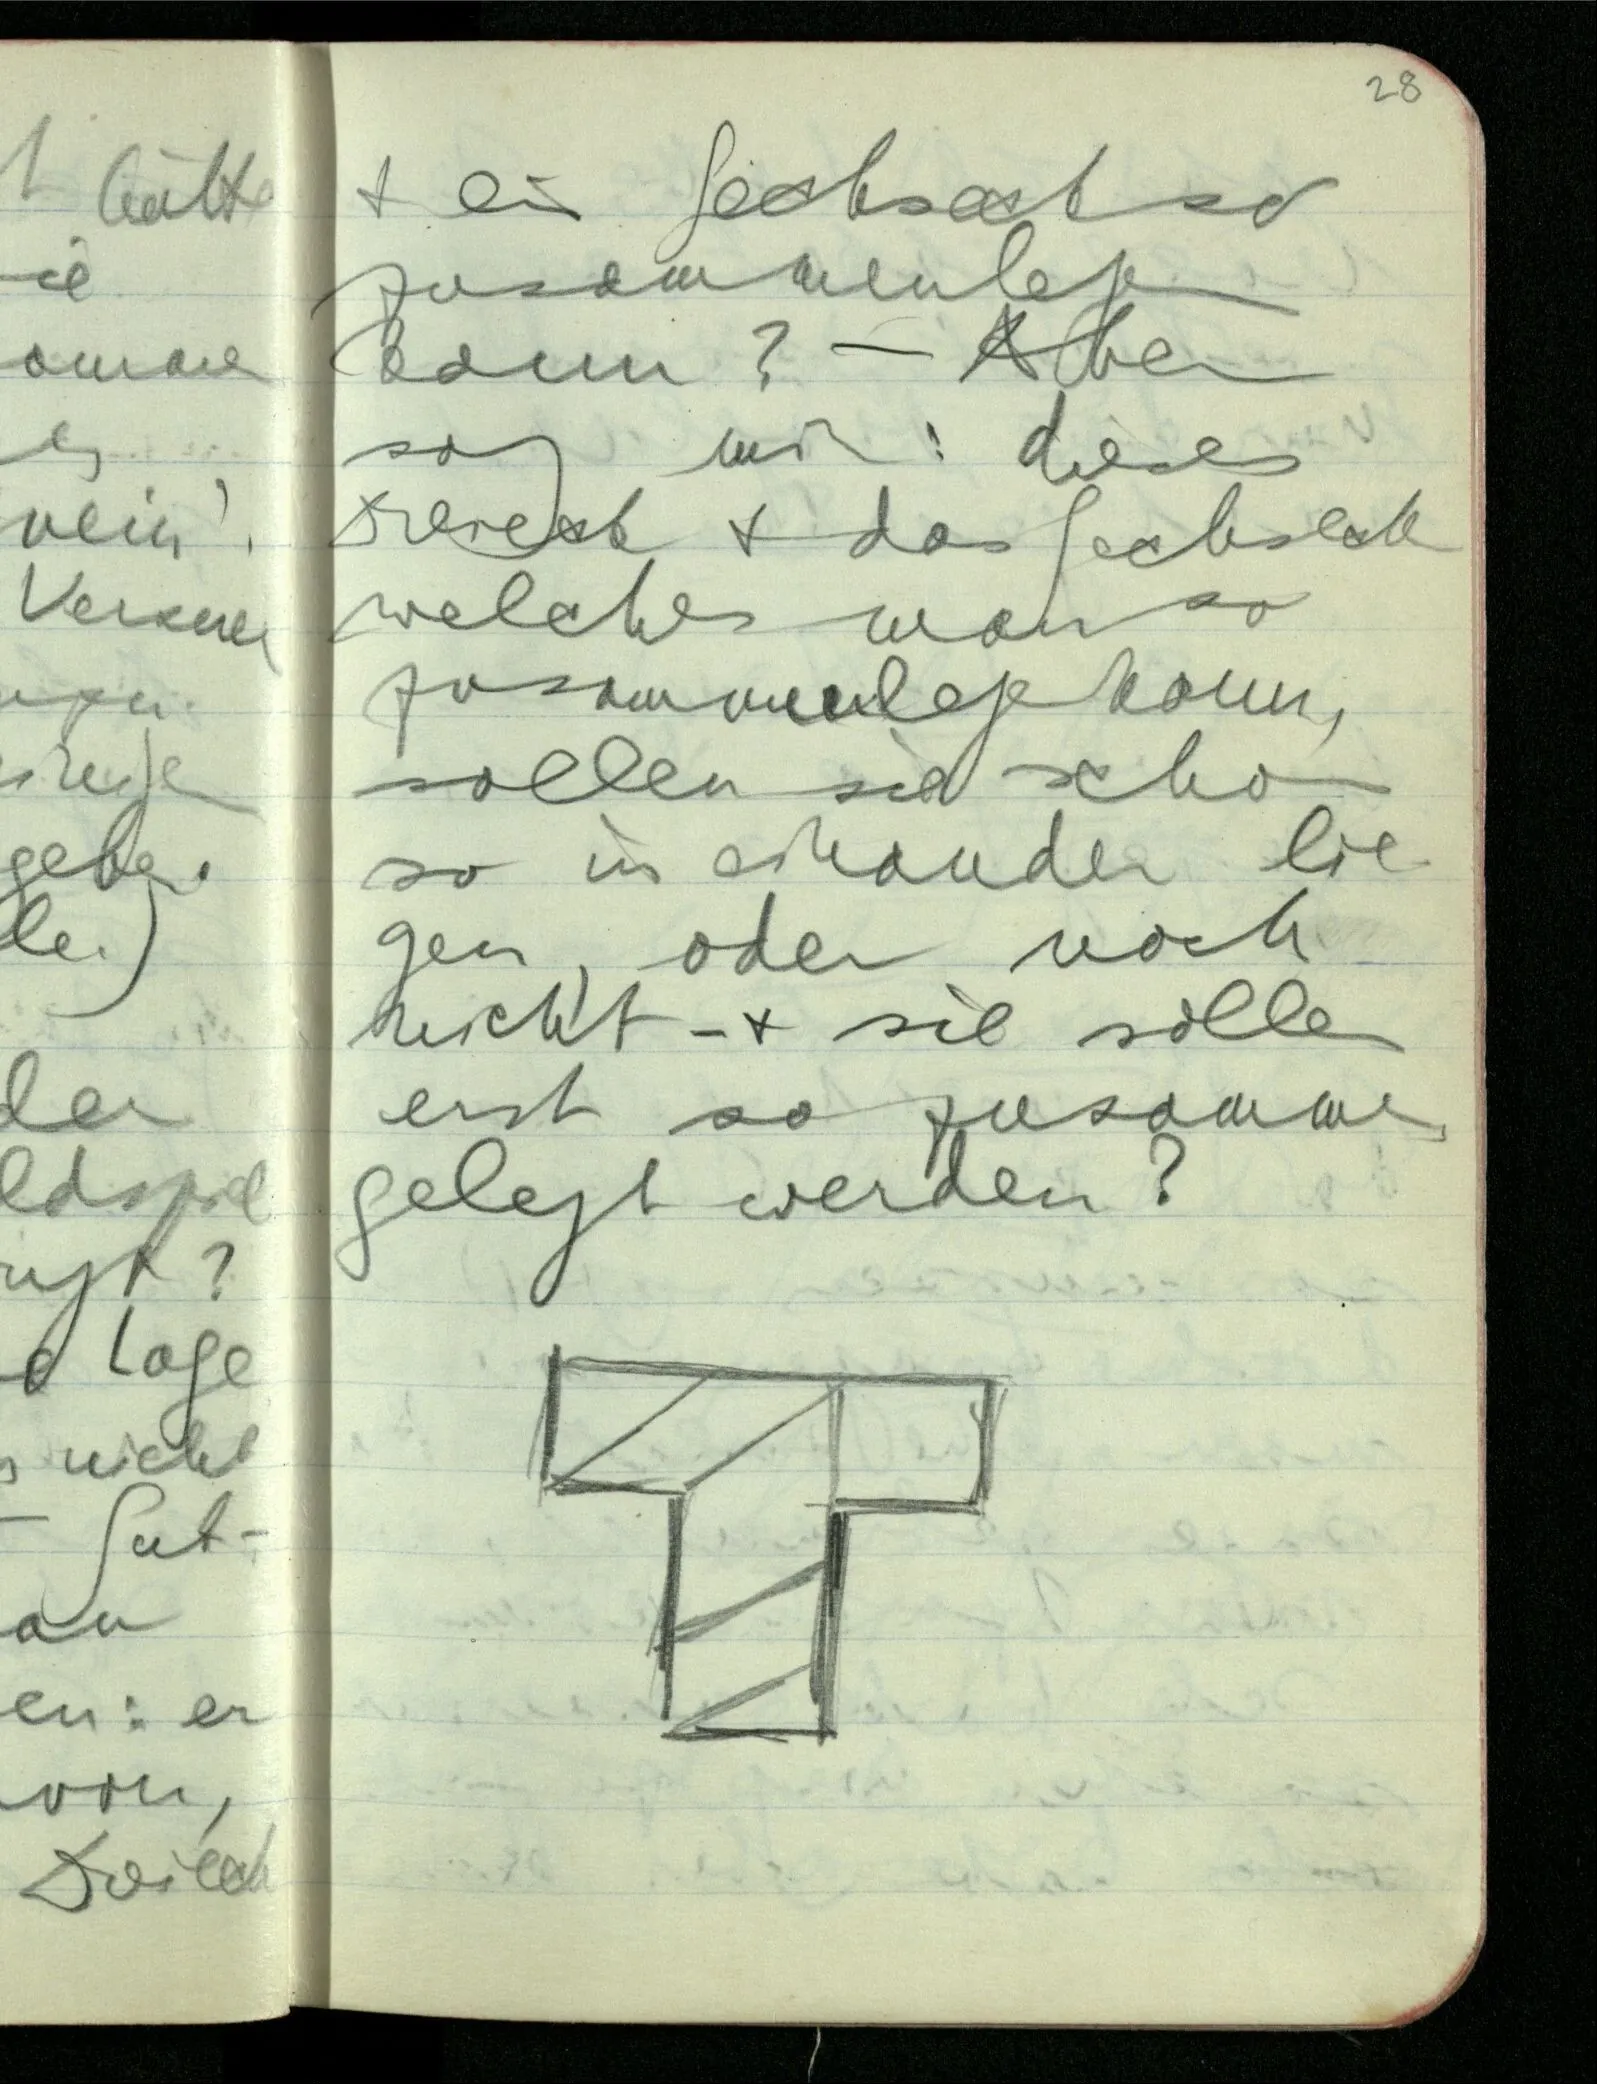 28
t hätte
+ ein Sechseck so
zusammenlegen
kann? – Aber
sag mir: dieses
Dreieck + das Sechseck
welches man so
zusammenlegen kann,
sollen sie schon
so in einander lie
gen, oder noch
nicht – + sie sollen
erst so zusammen
gelegt werden?
nein'.
geben.
le.)
der
ldspiel
? 
Lage
nicht
en: er
von,
Dreieck